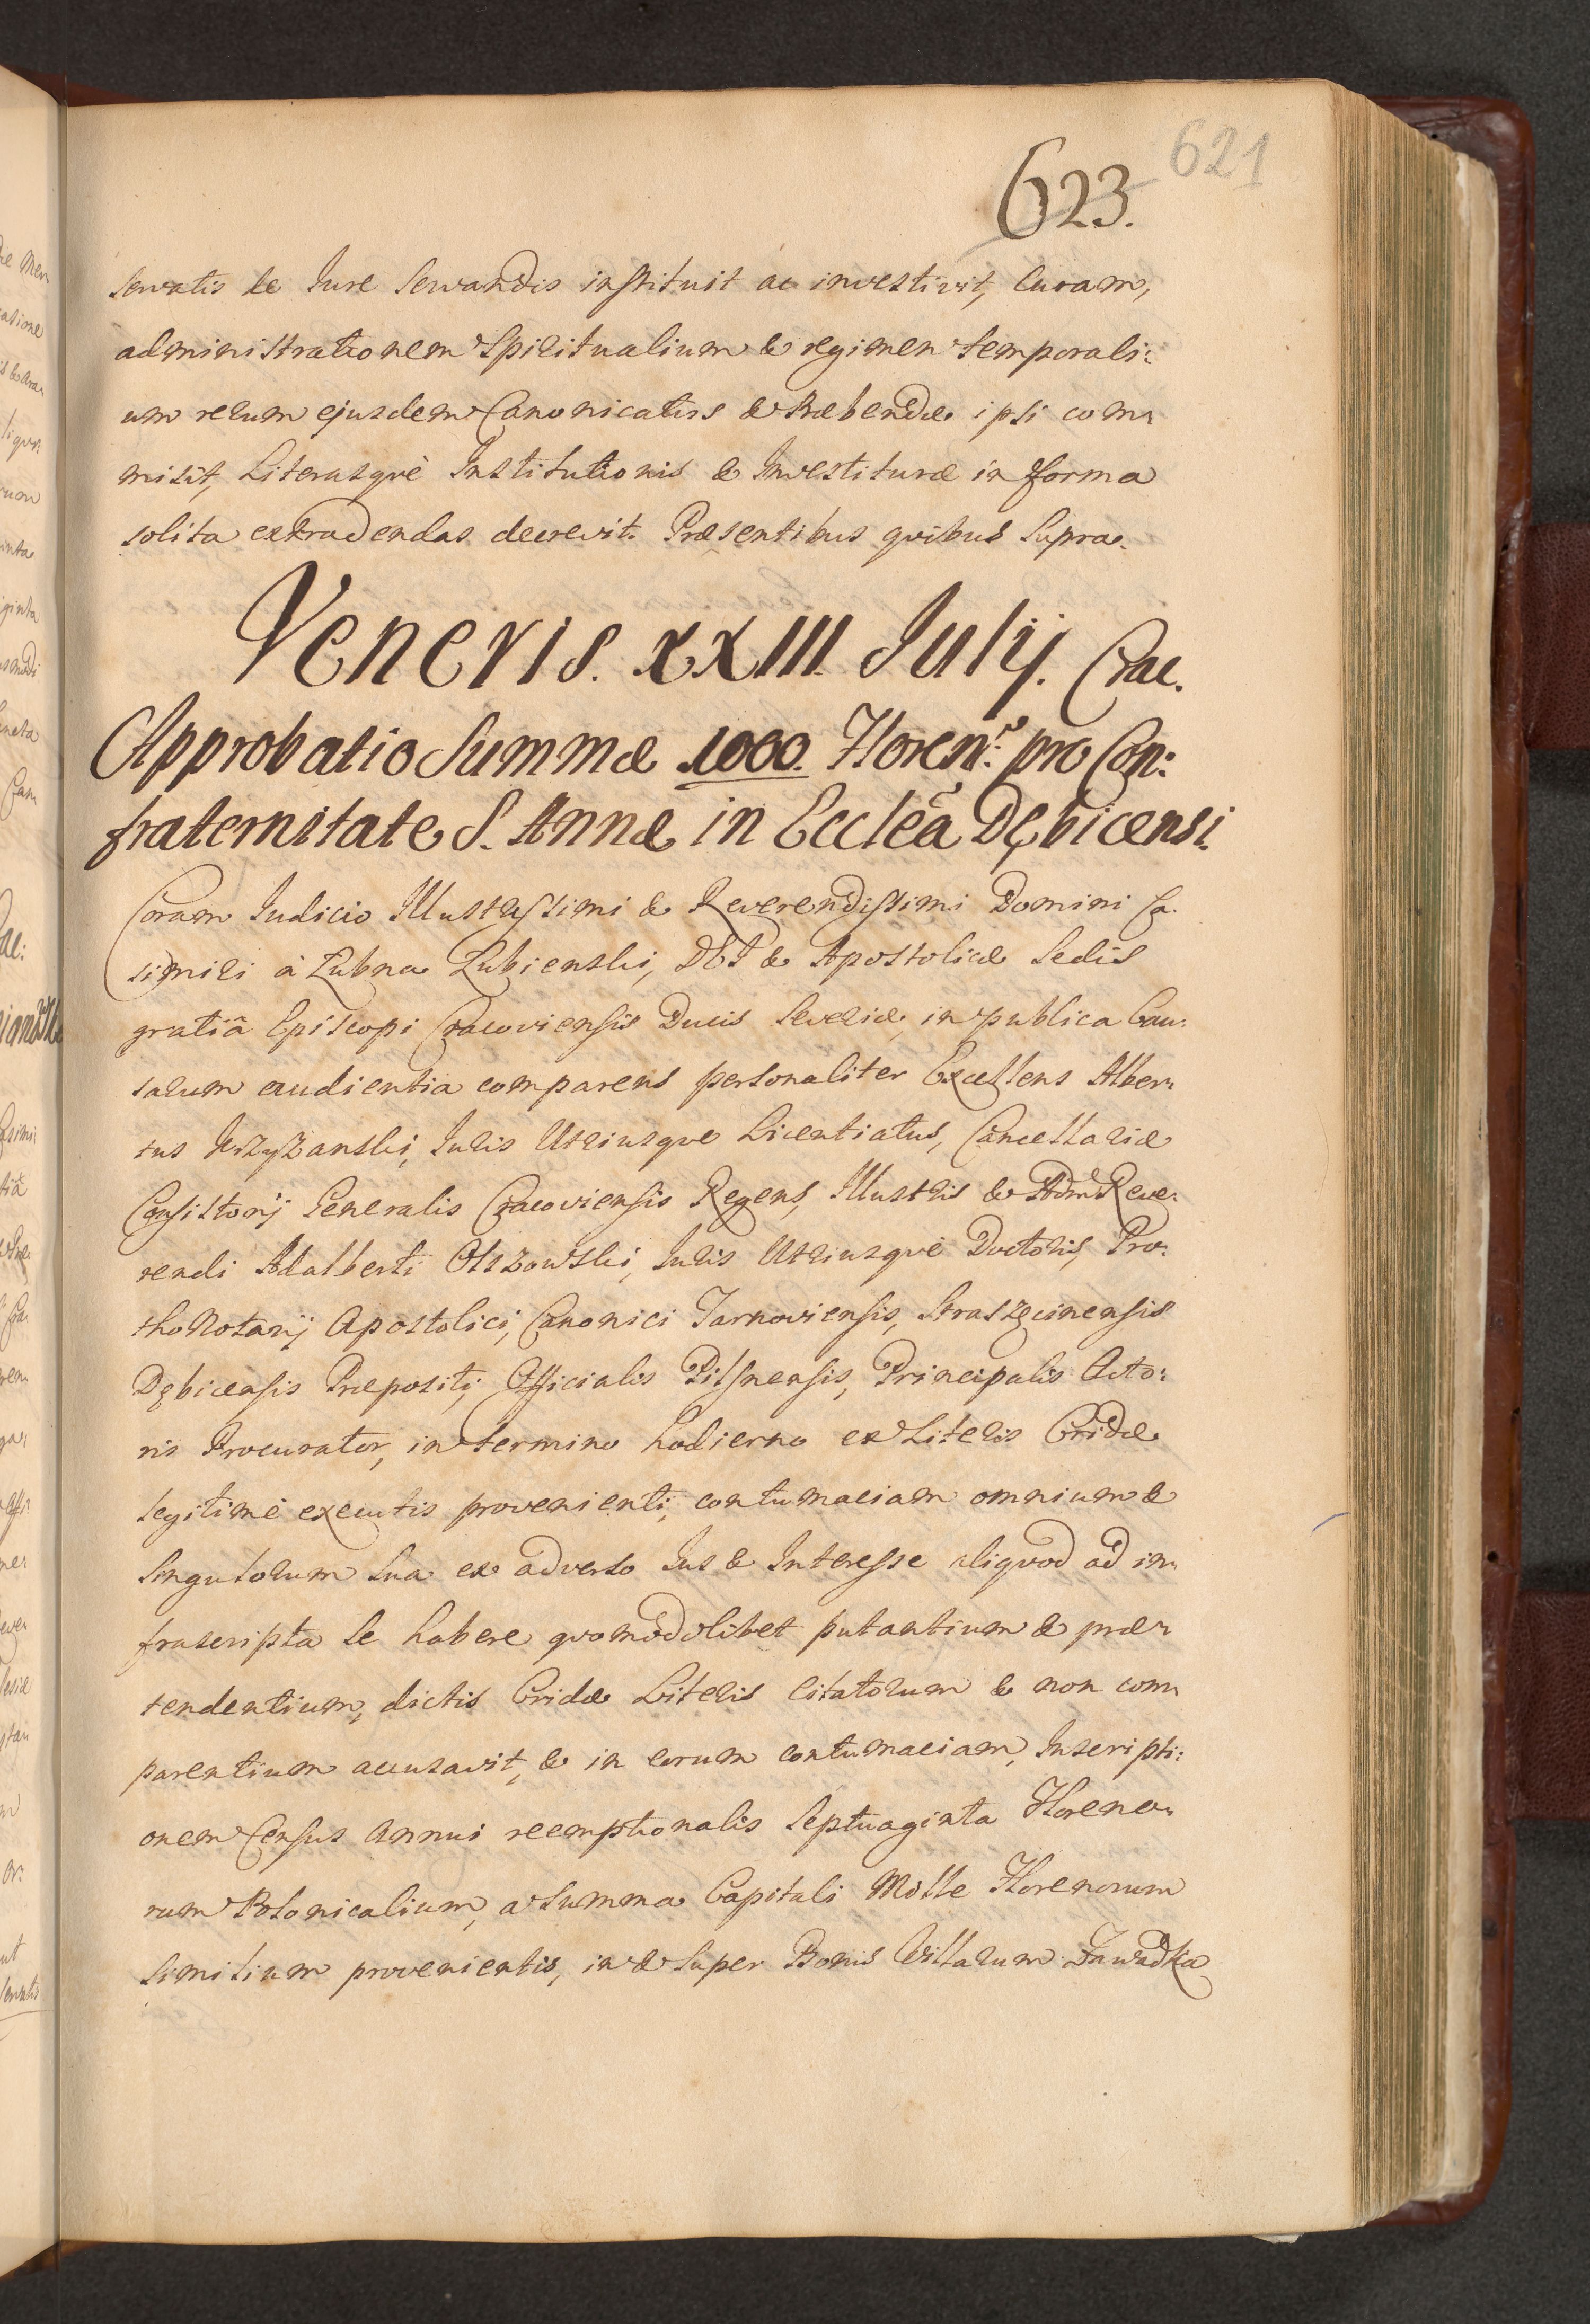 621
623.
servatis de Jure servandis instituit ac investivit, curam,
administrationem Spiritualium & regimen temporali:
um rerum ejusdem Canonicatus & Præbendæ ipsi com:
misit, Literasquè Institutionis & Investituræ in forma
solita extradendas decrevit. Præsentibus quibus Supra.
Veneris. XXIII. Julij. Crac.
Approbatio Summæ 1000. Floren: pro Con:
fraternitate S. Annæ in Ecclêa Dębicensi.
Coram Judicio Illustrissimi & Reverendissimi Domini Ca:
simiri à Łubna Łubienski, DEI & Apostolicæ Sedis
gratiâ Episcopi Cracoviensis Ducis Severiæ, in publica Cau:
sarum audientia comparens personaliter Excellens Alber:
tus Krzyżanski, Juris Utriusque Licentiatus, Cancellariæ
Consistorij Generalis Cracoviensis Regens, Illustris & Adm Reve:
rendi Adalberti Olszowski, Juris Utriusquè Doctoris, Pro:
thoNotarij Apostolici, Canonici Tarnoviensis, Straszęcinensis
Dębicensis Præpositi, Officialis Pilsnensis, Principalis Acto:
ris Procurator, in termino hodierno ex Literis Cridæ
legitimè executis provenienti, contumaciam omnium &
singulorum sua ex adverso Jus & Interesse aliquod ad in:
frascripta se habere quomodolibet putantium & præ:
tendentium, dictis Cridæ Literis citatorum & non com:
parentium accusavit, & in eorum contumaciam, Inscripti:
onem Census annui reemptionalis Septuaginta Floreno:
rum Polonicalium, a Summa Capitali Mille Florenorum
similium provenientis, in & super Bonis Villarum Zawadka